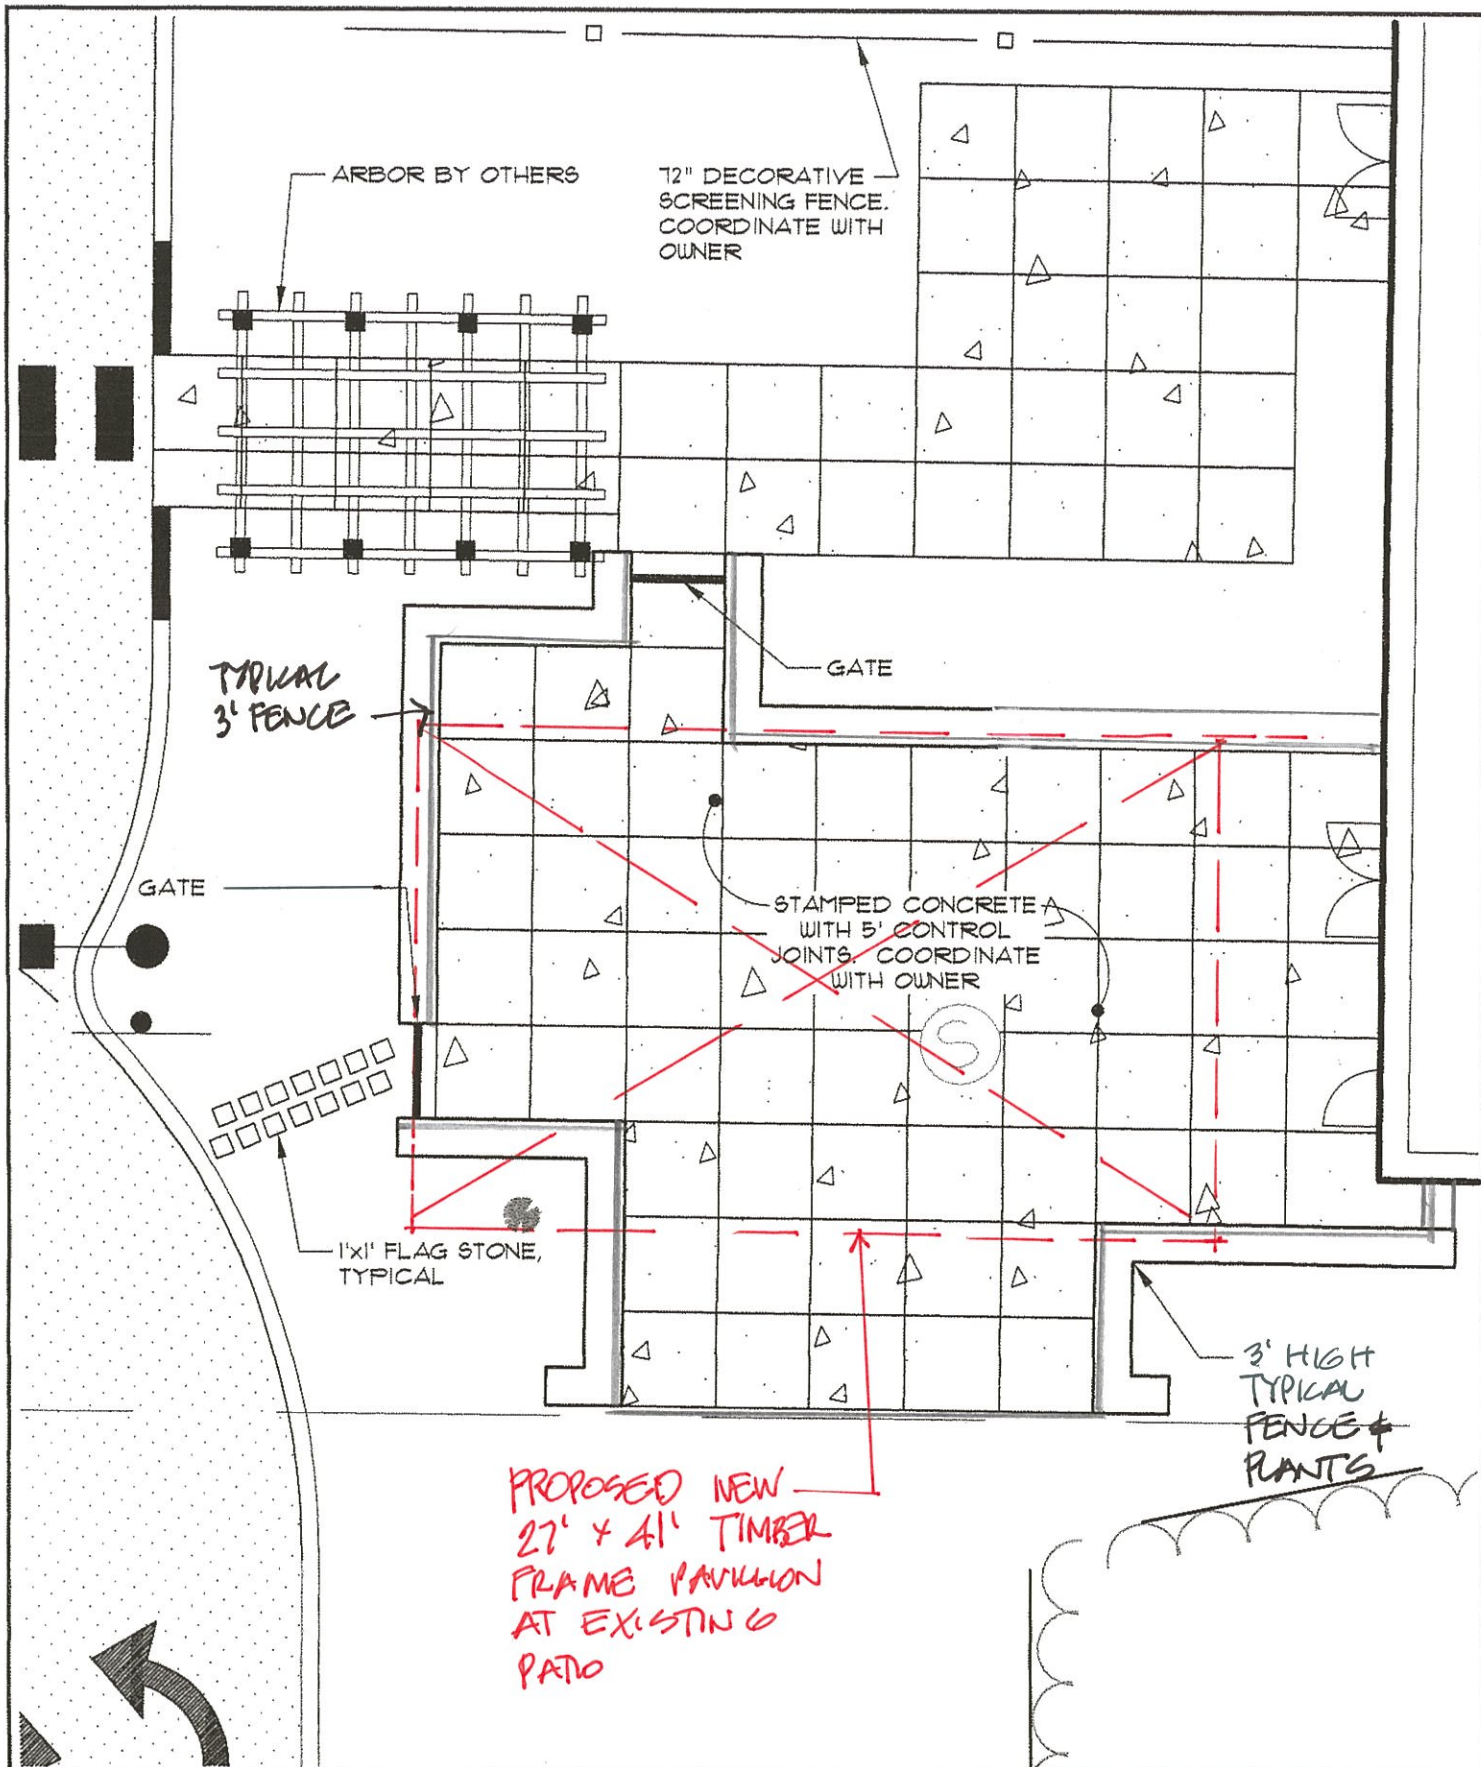 ARBOR BY OTHERS
72" DECORATIVE
SCREENING FENCE.
COORDINATE WITH
OWNER
TYPICAL
3' FENCE
GATE
GATE
STAMPED CONCRETE
WITH 5' CONTROL
JOINTS. COORDINATE
WITH OWNER
S
1'x1' FLAG STONE,
TYPICAL
3' HIGH
TYPICAL
FENCE &
PLANTS
PROPOSED NEW
27' x 41' TIMBER
FRAME PAVILLION
AT EXISTING
PATIO